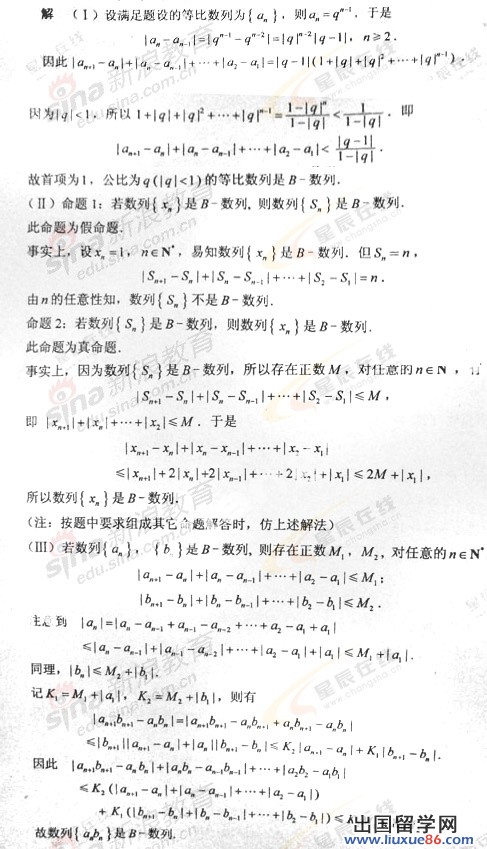 解 (Ⅰ)设满足题设的等比数列为{aₙ},则aₙ=qⁿ⁻¹.于是
|aₙ-aₙ₋₁|=|qⁿ⁻¹-qⁿ⁻²|=|q|ⁿ⁻²|q-1|, n≥2.
因此|aₙ₊₁-aₙ|+|aₙ-aₙ₋₁|+…+|a₂-a₁|=|q-1|(1+|q|+|q|²+…+|q|ⁿ⁻¹).
因为|q|<1,所以1+|q|+|q|²+…+|q|ⁿ⁻¹=(1-|q|ⁿ)/(1-|q|)<1/(1-|q|).即
|aₙ₊₁-aₙ|+|aₙ-aₙ₋₁|+…+|a₂-a₁|<|q-1|/(1-|q|).
故首项为1,公比为q(|q|<1)的等比数列是B-数列.
(Ⅱ)命题1:若数列{xₙ}是B-数列,则数列{Sₙ}是B-数列.
此命题为假命题.
事实上,设xₙ=1, n∈N*,易知数列{xₙ}是B-数列.但Sₙ=n,
|Sₙ₊₁-Sₙ|+|Sₙ-Sₙ₋₁|+…+|S₂-S₁|=n.
由n的任意性知,数列{Sₙ}不是B-数列.
命题2:若数列{Sₙ}是B-数列,则数列{xₙ}是B-数列.
此命题为真命题.
事实上,因为数列{Sₙ}是B-数列,所以存在正数M,对任意的n∈N ,
|Sₙ₊₁-Sₙ|+|Sₙ-Sₙ₋₁|+…+|S₂-S₁|≤M,
即 |xₙ₊₁|+|xₙ|+…+|x₂|≤M.于是
|xₙ₊₁-xₙ|+|xₙ-xₙ₋₁|+…+|x₂-x₁|
≤|xₙ₊₁|+2|xₙ|+2|xₙ₋₁|+…+2|x₂|+|x₁|≤2M+|x₁|,
所以数列{xₙ}是B-数列.
(注:按题中要求组成其它命题解答时,仿上述解法)
(Ⅲ)若数列{aₙ}, {b }是B-数列,则存在正数M₁, M₂,对任意的n∈N*
|aₙ₊₁-aₙ|+|aₙ-aₙ₋₁|+…+|a₂-a₁|≤M₁;
|bₙ₊₁-bₙ|+|bₙ-bₙ₋₁|+…+|b₂-b₁|≤M₂.
注意到 |aₙ|=|aₙ-aₙ₋₁+aₙ₋₁-aₙ₋₂+…+a₂-a₁+a₁|
≤|aₙ-aₙ₋₁|+|aₙ₋₁-aₙ₋₂|+…+|a₂-a₁|+|a₁|≤M₁+|a₁|.
同理,|bₙ|≤M₂+|b₁|.
记K₁=M₁+|a₁|, K₂=M₂+|b₁|,则有
|aₙ₊₁bₙ₊₁-aₙbₙ|=|aₙ₊₁bₙ₊₁-aₙbₙ₊₁+aₙbₙ₊₁-aₙbₙ|
≤|bₙ₊₁||aₙ₊₁-aₙ|+|aₙ||bₙ₊₁-bₙ|≤K₂|aₙ₊₁-aₙ|+K₁|bₙ₊₁-bₙ|.
因此 |aₙ₊₁bₙ₊₁-aₙbₙ|+|aₙbₙ-aₙ₋₁bₙ₋₁|+…+|a₂b₂-a₁b₁|
≤K₂(|aₙ₊₁-aₙ|+|aₙ-aₙ₋₁|+…+|a₂-a₁|)
+K₁(|bₙ₊₁-bₙ|+|bₙ-bₙ₋₁|+…+|b₂-b₁|)≤
故数列{aₙbₙ}是B-数列.
出国留学网
www.liuxue86.com